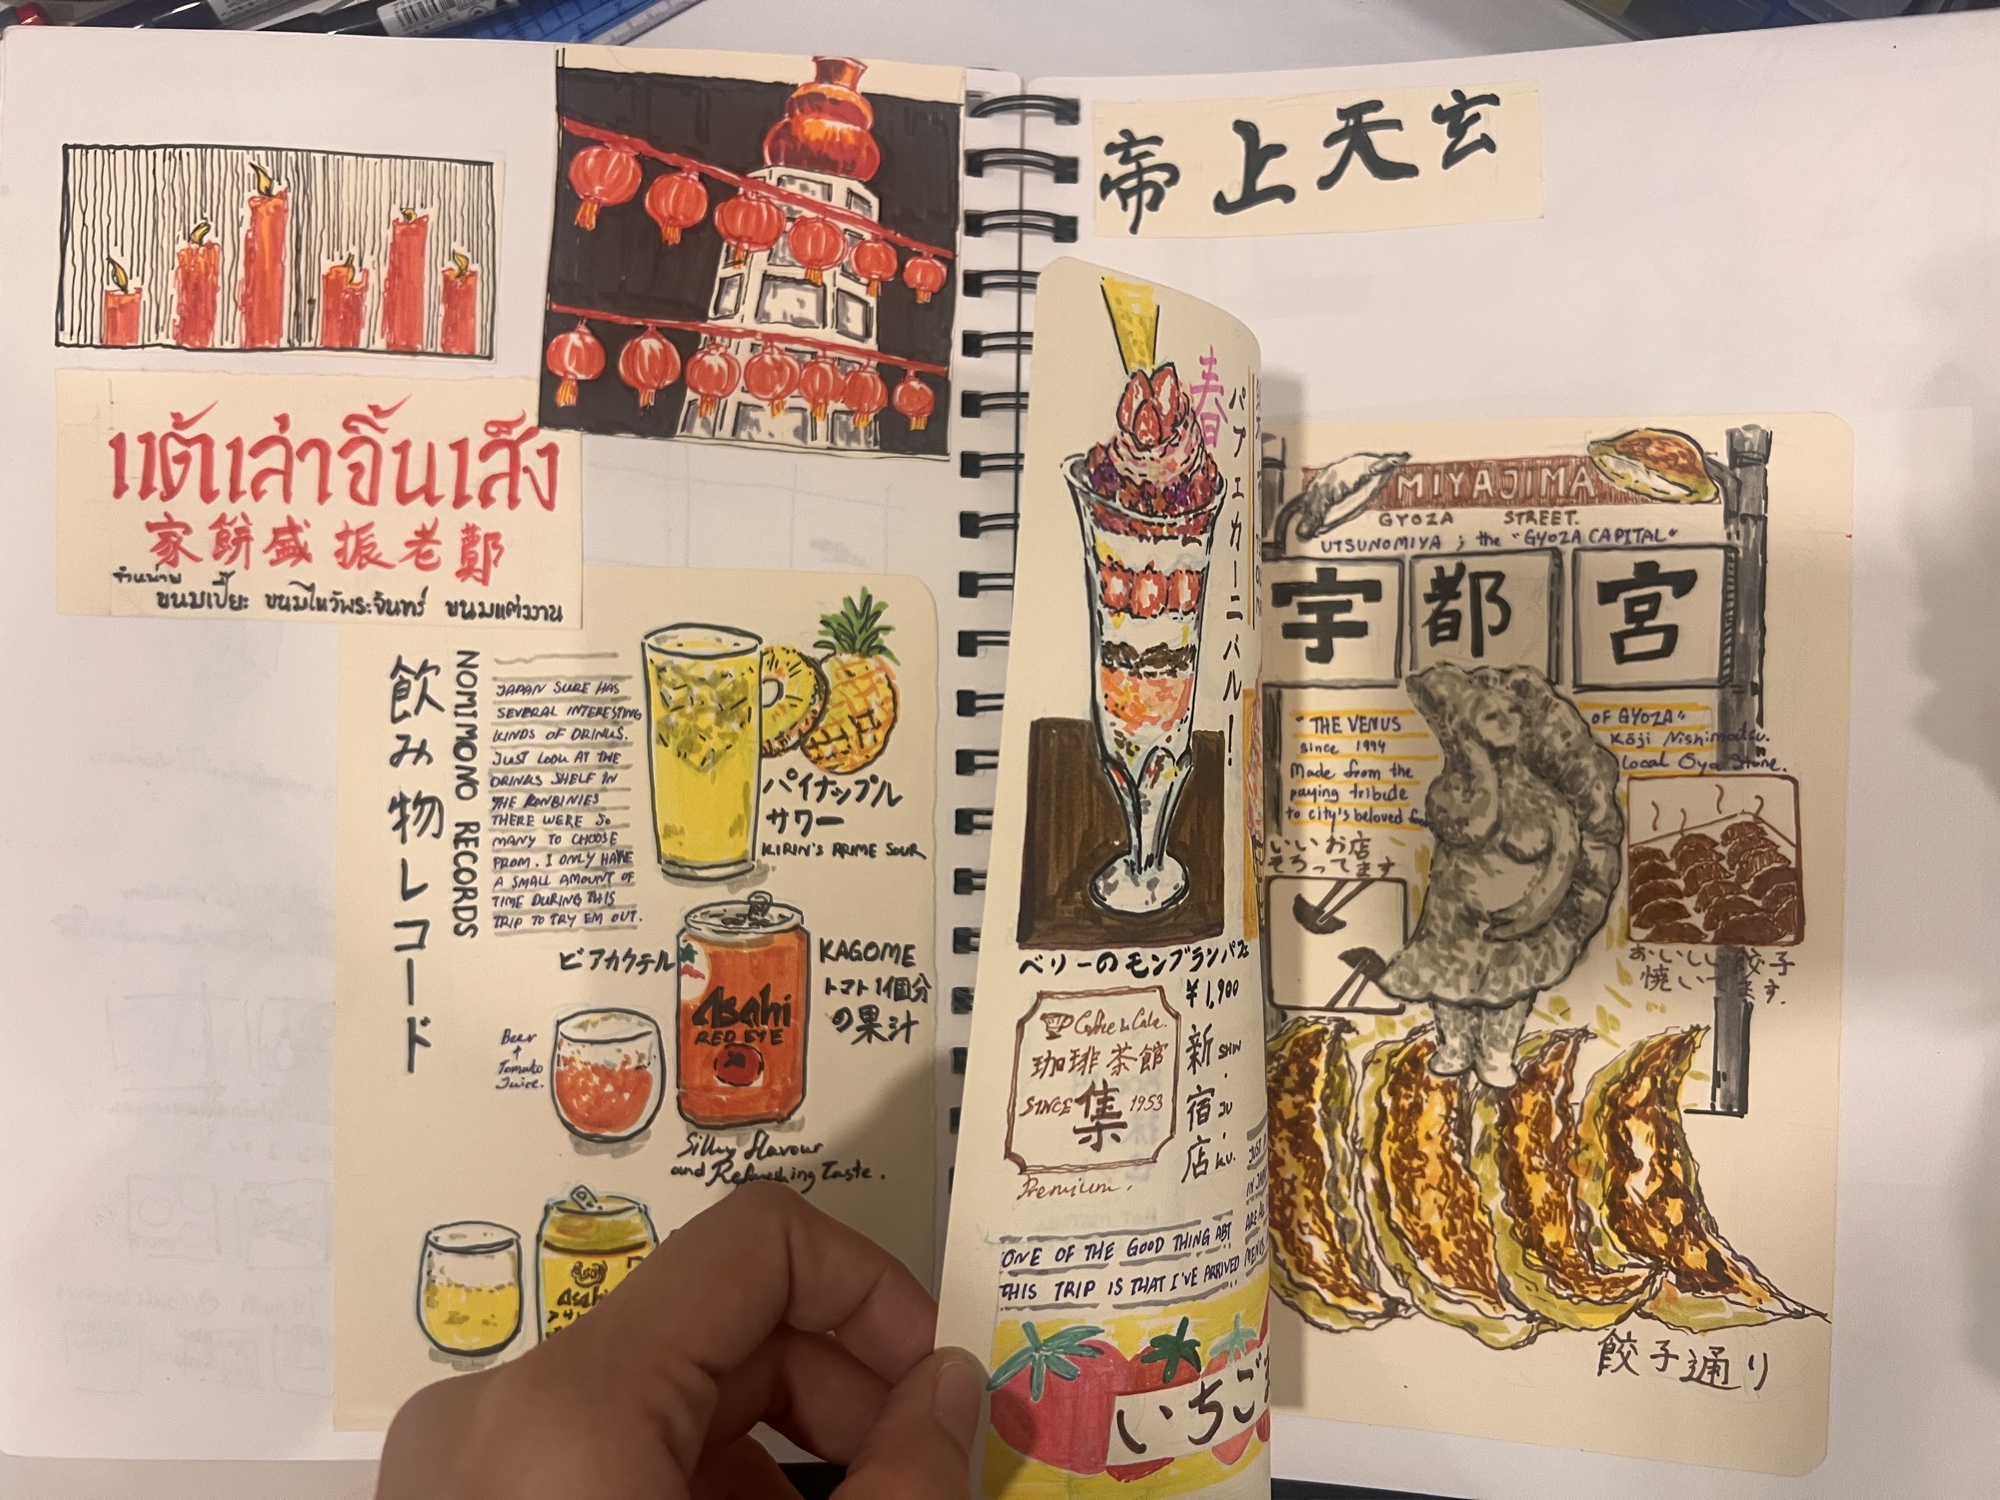 แต้เล่าจิ้นเส็ง
家餅盛振老鄭
จำหน่าย
ขนมเปี๊ยะ ขนมไหว้พระจันทร์ ขนมแต่งงาน
飲み物レコード
NOMIMONO RECORDS
JAPAN SURE HAS
SEVERAL INTERESTING
KINDS OF DRINKS.
JUST LOOK AT THE
DRINKS SHELF IN
THE KONBINIES
THERE WERE SO
MANY TO CHOOSE
FROM. I ONLY HAVE
A SMALL AMOUNT OF
TIME DURING THIS
TRIP TO TRY EM OUT.
パイナップル
サワー
KIRIN'S PRIME SOUR
ビアカクテル
Asahi
RED EYE
KAGOME
トマト1個分
の果汁
Beer
+
Tomato
Juice.
Silky flavour
and Refreshing Taste.
Asahi
帝上天玄
春
パフェカーニバル!
ベリーのモンブランパフェ
¥1,900
Coffee & Cake.
珈琲茶館
SINCE 集 1953
Premium.
新宿店
SHIN・JU・KU.
ONE OF THE GOOD THING ABT
THIS TRIP IS THAT I'VE ARRIVED
いちご
MIYAJIMA
GYOZA STREET.
UTSUNOMIYA ; the "GYOZA CAPITAL"
宇都宮
"THE VENUS OF GYOZA"
since 1994 Kōji Nishimatsu.
Made from the local Ōya Stone.
paying tribute
to city's beloved
いいお店
そろってます
おいしい餃子
焼いてます.
餃子通り